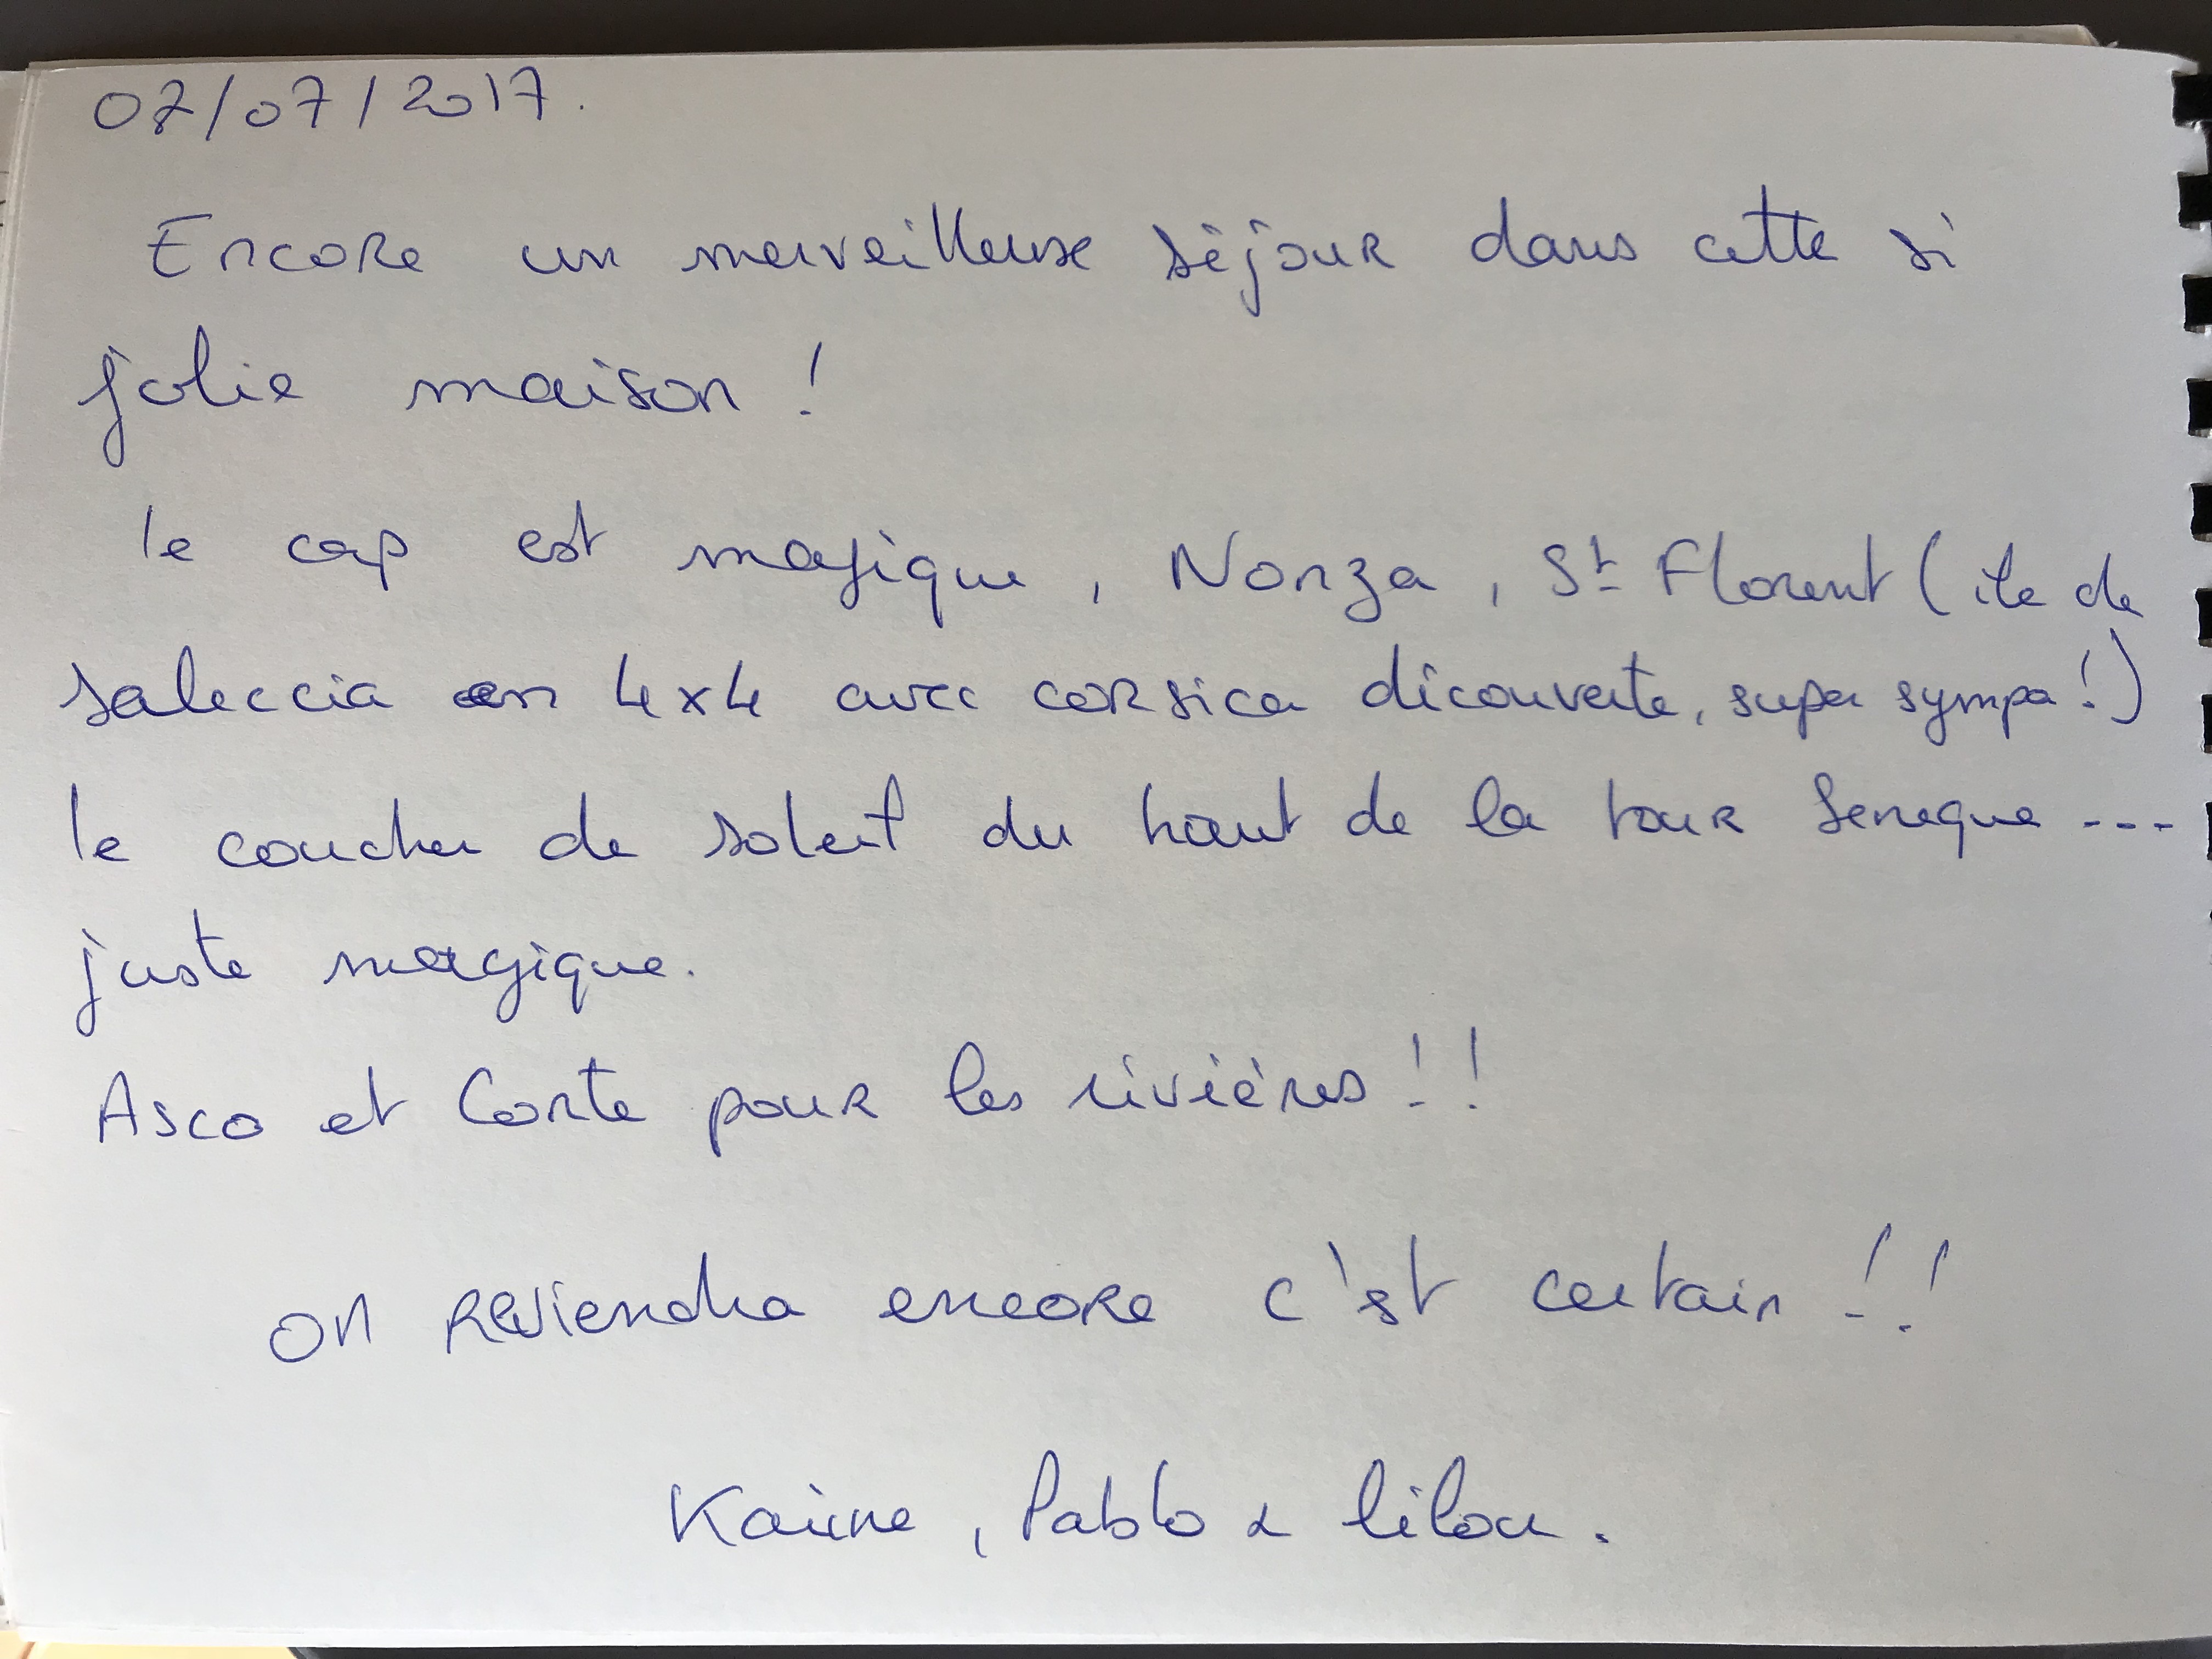 07/07/2017.
Encore un merveilleuse séjour dans cette si
jolie maison !
le cap est magique, Nonza, St Florent (ile de
saleccia en 4x4 avec corsica découverte, super sympa !)
le coucher de soleil du haut de la tour Seneque ---
juste magique.
Asco et Corte pour les rivières !!
on reviendra encore c'est certain !!
Pablo & lilou.